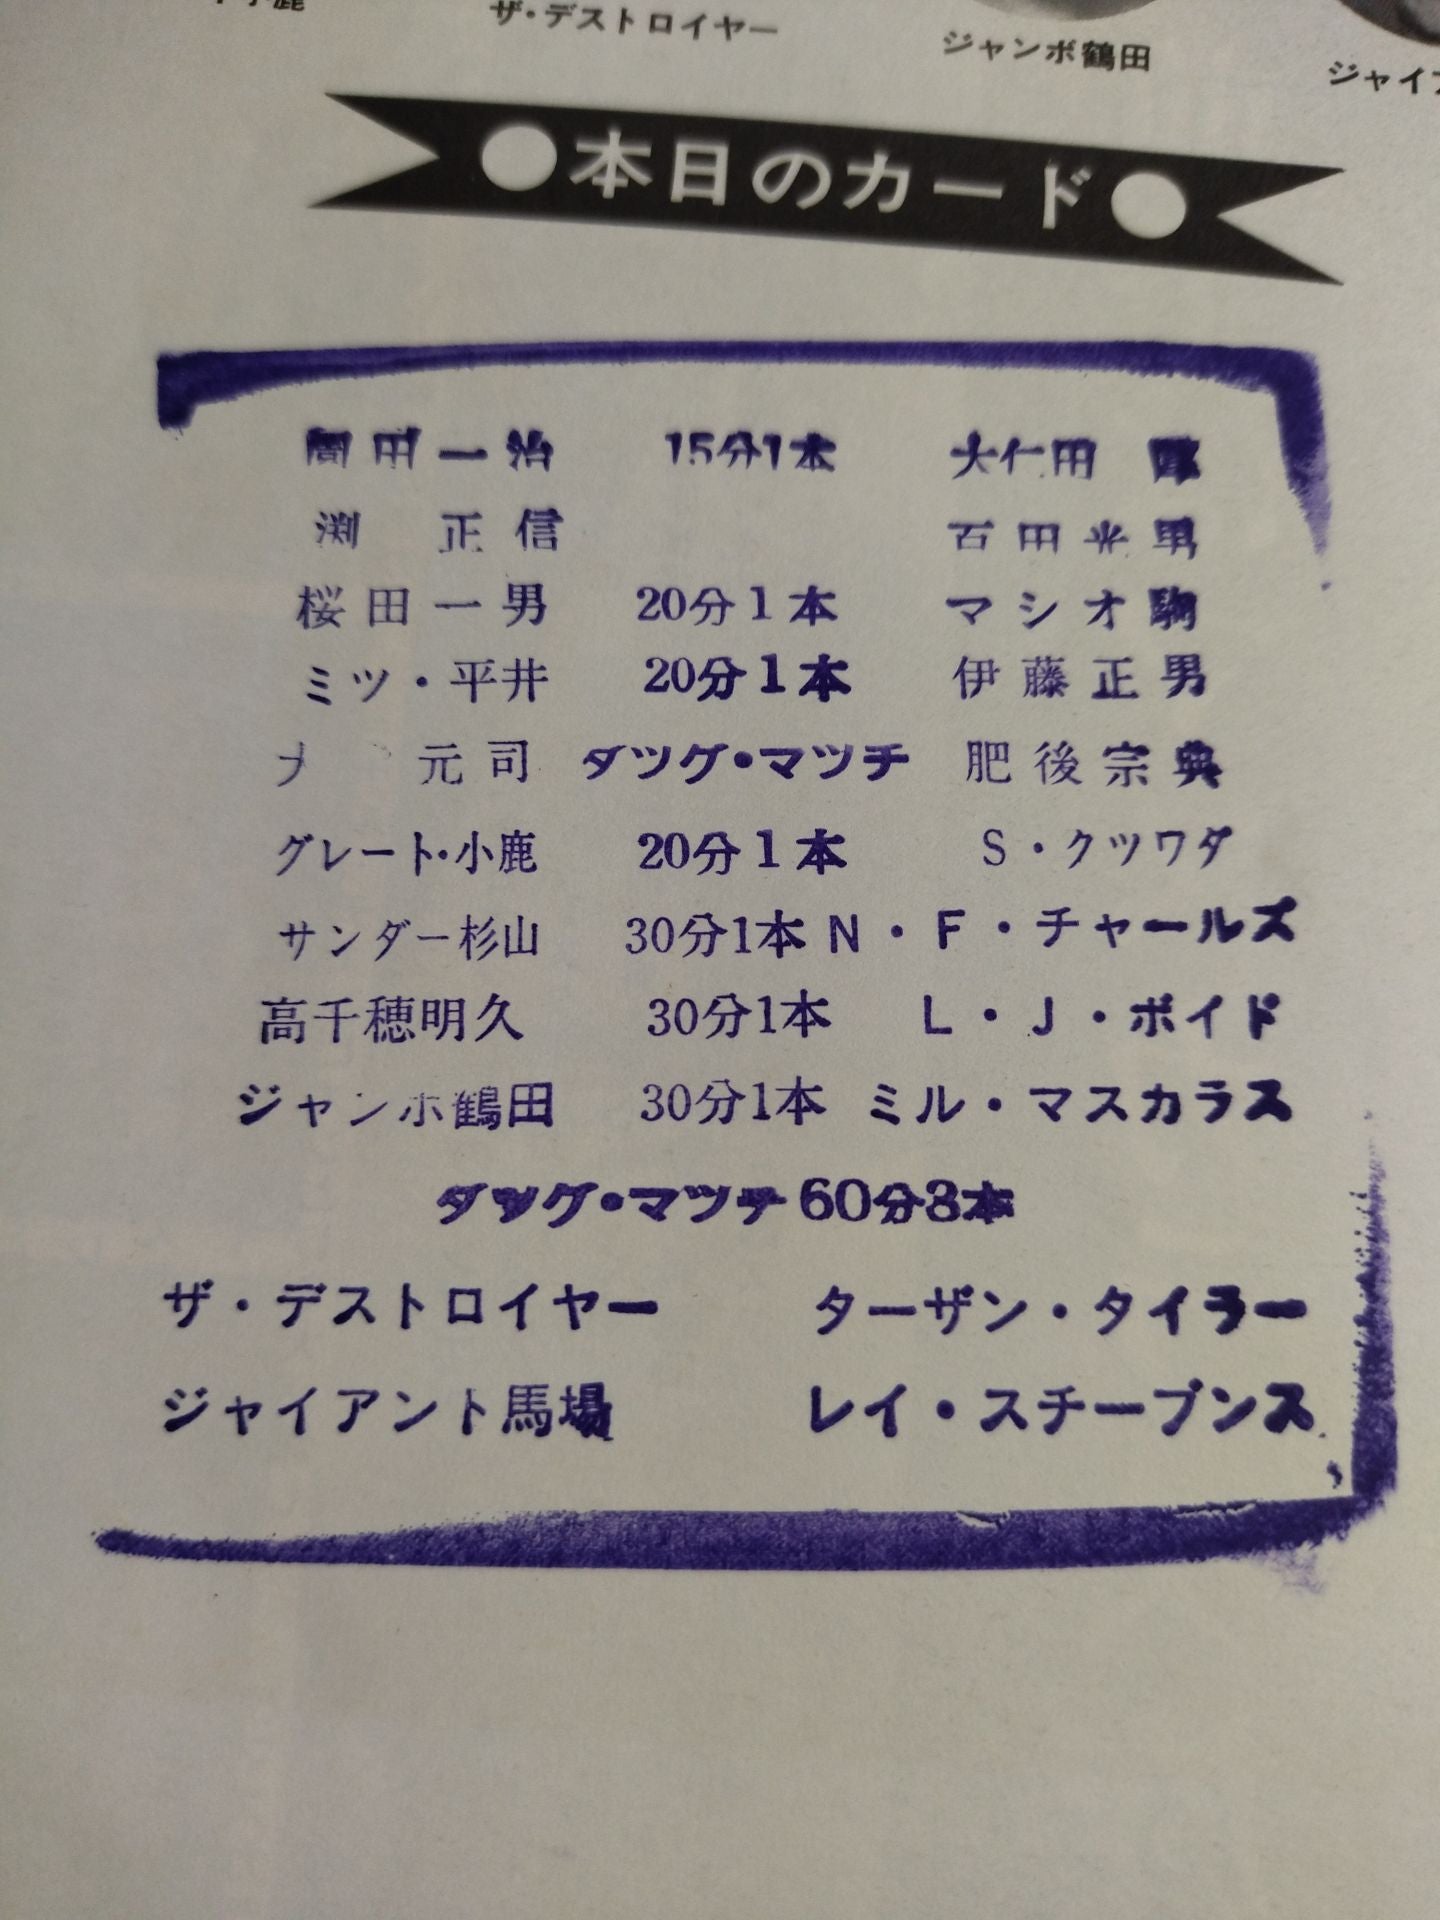 小鹿
ザ・デストロイヤー
ジャンボ鶴田
ジャイア
●本日のカード●
薗田一治 15分1本 大仁田 厚
渕 正信 百田光男
桜田一男 20分1本 マシオ駒
ミツ・平井 20分1本 伊藤正男
元司 タツグ・マツチ 肥後宗典
グレート・小鹿 20分1本 S・クツワダ
サンダー杉山 30分1本 N・F・チャールズ
高千穂明久 30分1本 L・J・ボイド
ジャンボ鶴田 30分1本 ミル・マスカラス
タツグ・マツチ 60分3本
ザ・デストロイヤー ターザン・タイラー
ジャイアント馬場 レイ・スチーブンス